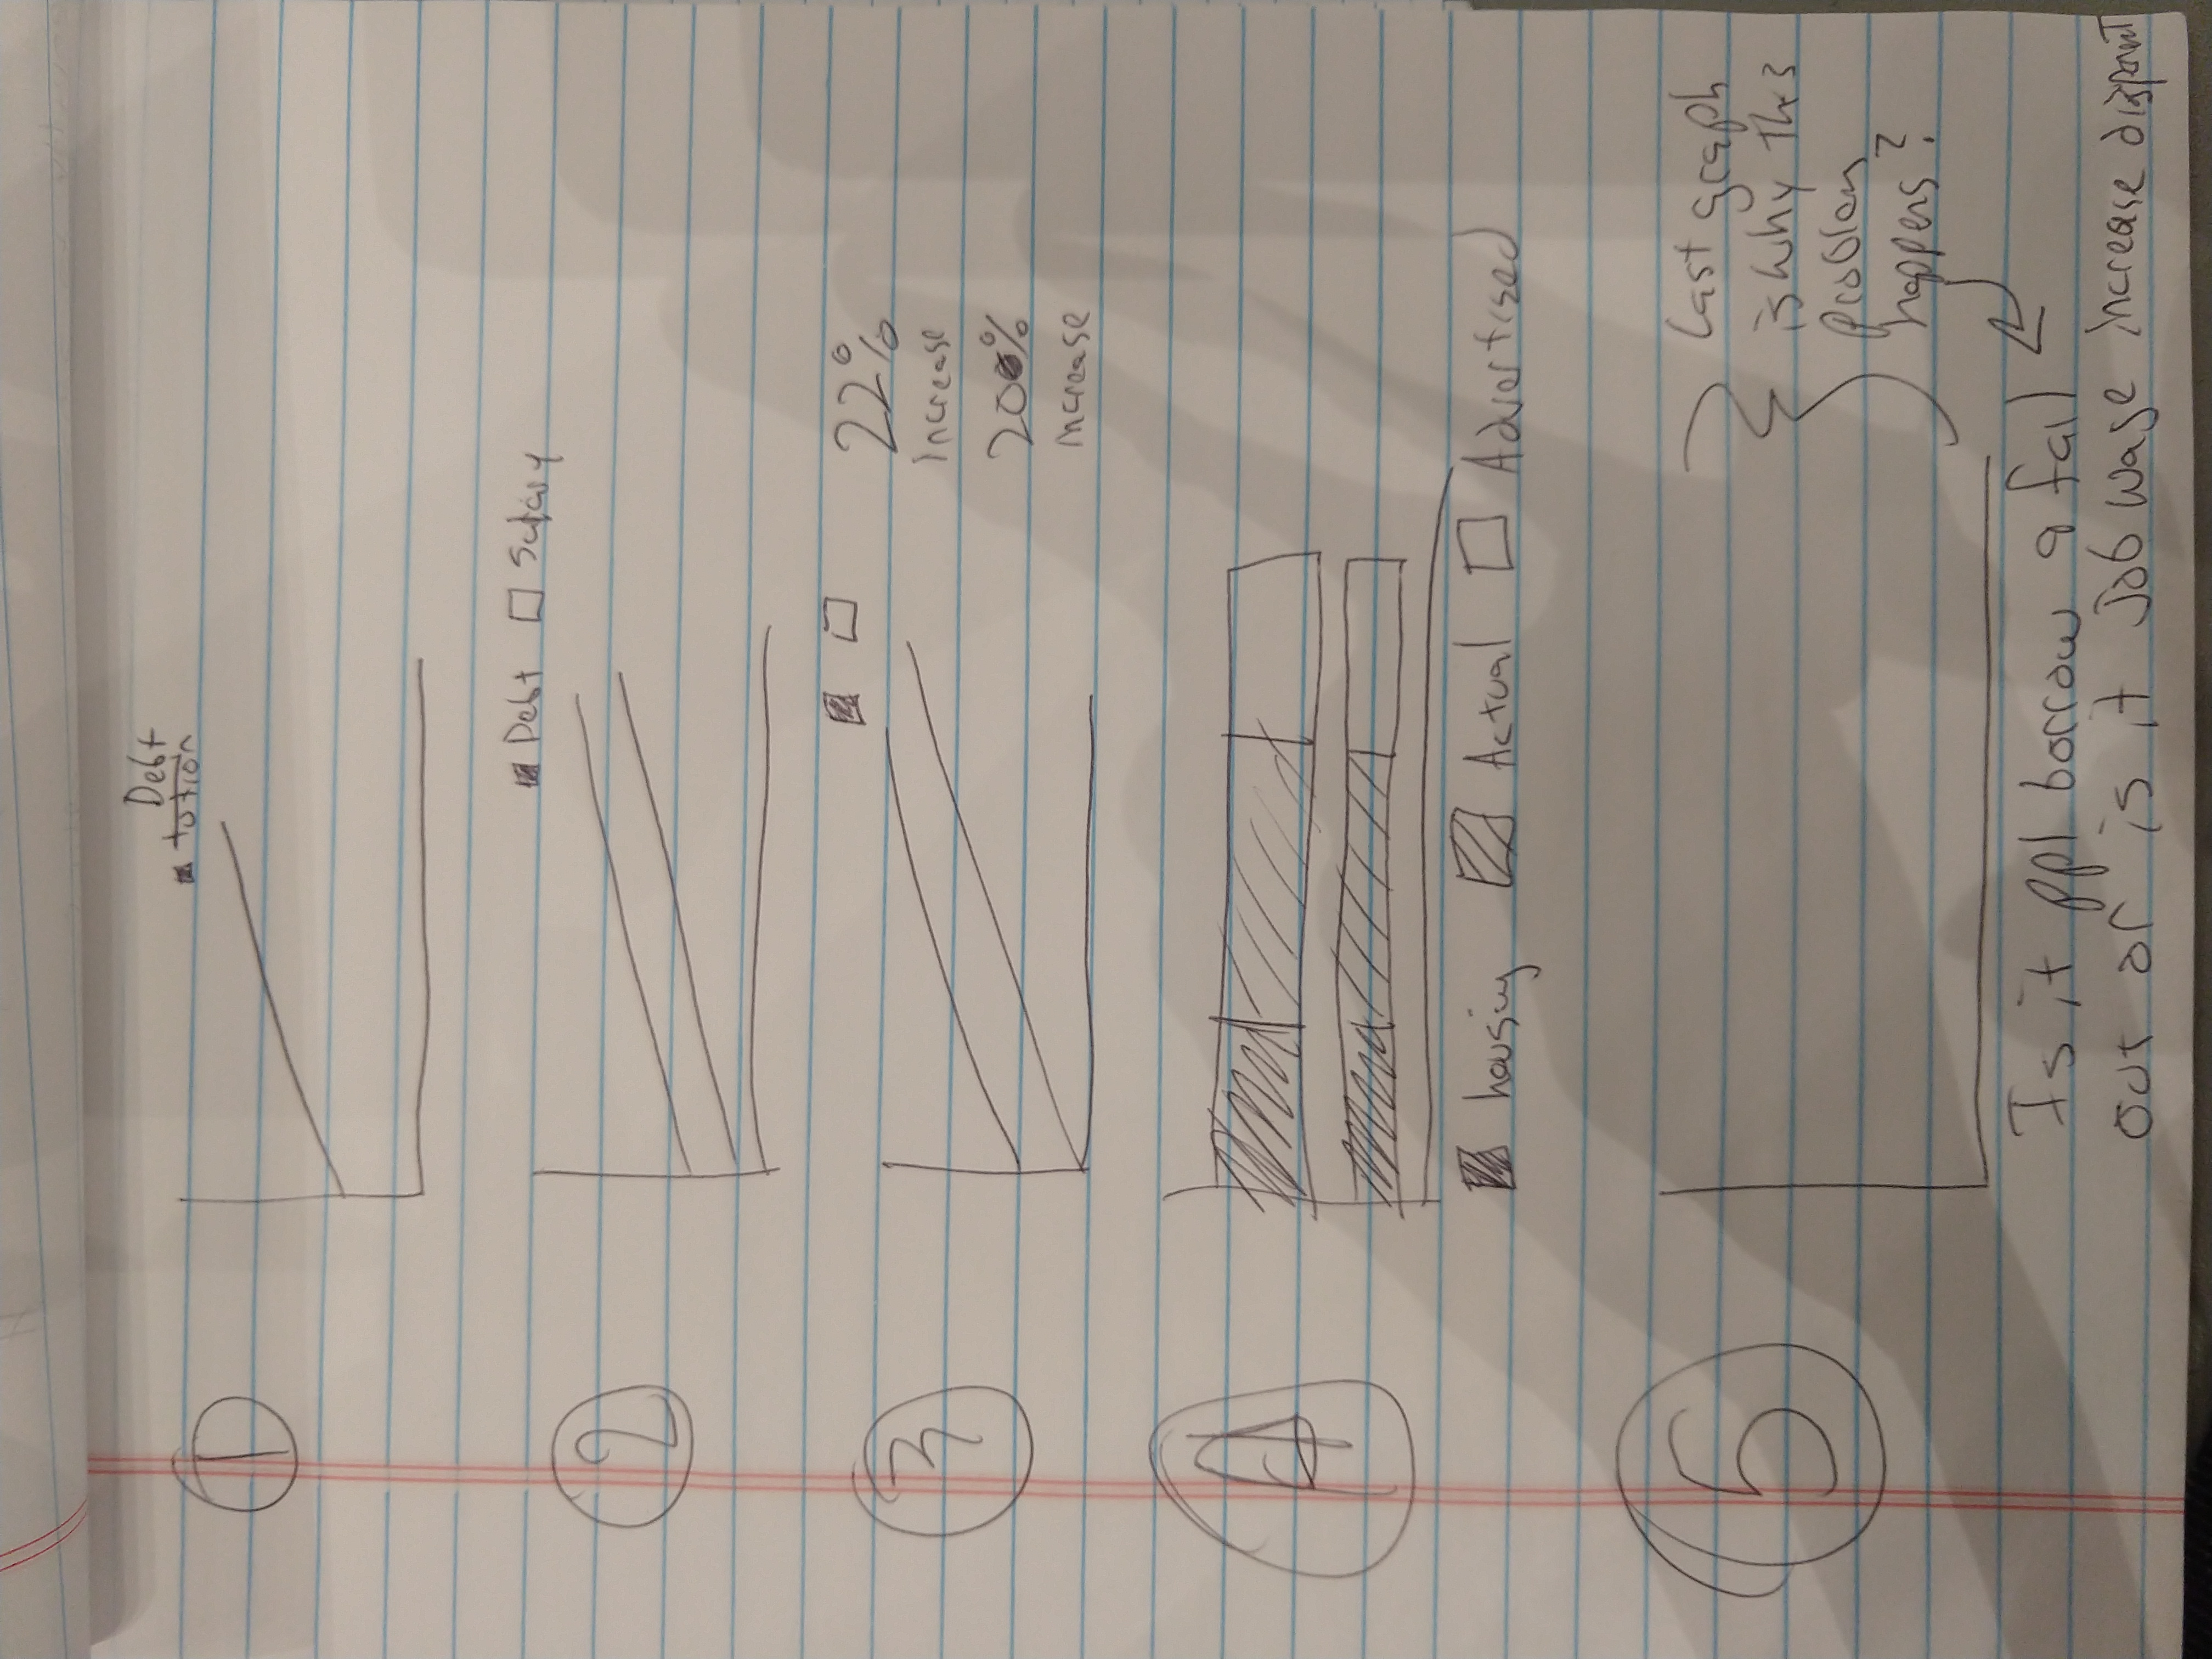 1
Debt
tution
2
Debt Salary
3
22%
increase
200%
increase
4
housing Actual Advertised
5
Last graph
is why this
problem
happens?
Is it ppl borrow & fail
out or is it Job wage increase